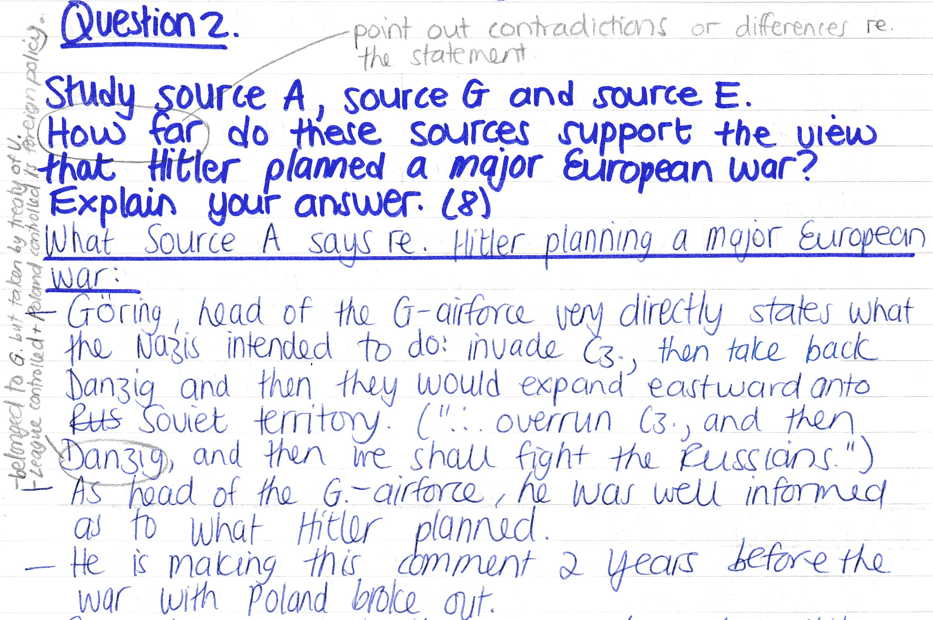 Question 2.
point out contradictions or differences re.
the statement
Study source A, source G and source E.
How far do these sources support the view
that Hitler planned a major European war?
Explain your answer. (8)
What Source A says re. Hitler planning a major European
war:
- Göring, head of the G-airforce very directly states what
the Nazis intended to do: invade Cz., then take back
Danzig and then they would expand eastward onto
Rus Soviet territory. ("... overrun Cz., and then
Danzig, and then we shall fight the Russians.")
- As head of the G.-airforce, he was well informed
as to what Hitler planned.
- He is making this comment 2 years before the
war with Poland broke out.
- belonged to G. but taken by treaty of V.
- League controlled + Poland controlled is foreign policy.